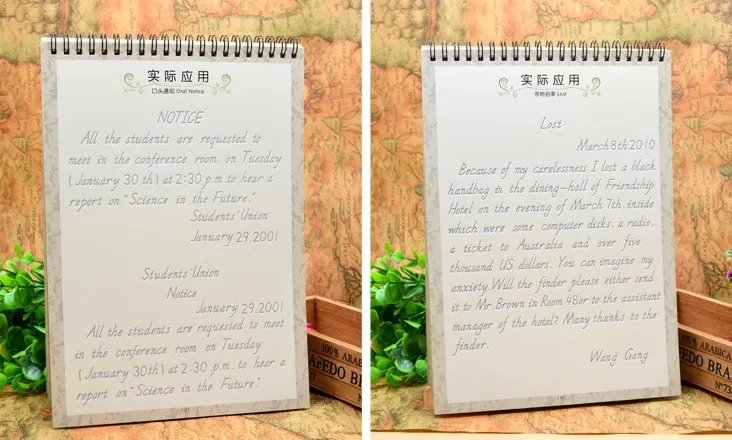 实际应用
口头通知 Oral Notice
NOTICE
All the students are requested to
meet in the conference room on Tuesday
(January 30th) at 2:30 p.m.to hear a
report on "Science in the Future."
Students'Union
January 29.2001
Students'Union
Notice
January 29.2001
All the students are requested to meet
in the conference room on Tuesday
(January 30th) at 2:30 p.m. to hear a
report on "Science in the Future."
实际应用
寻物启事 Lost
Lost
March8th.2010
Because of my carelessness I lost a black
handbag in the dining-hall of Friendship
Hotel on the evening of March 7th. inside
which were some computer disks. a radio.
a ticket to Australia and over five
thousand US dollars. You can imagine my
anxiety.Will the finder please either send
it to Mr.Brown in Room 48or to the assistant
manager of the hotel? Many thanks to the
finder.
Wang Gang
100% ARABICA
FEDO BRA
100% ARABIC
EDO BRA
Nº73